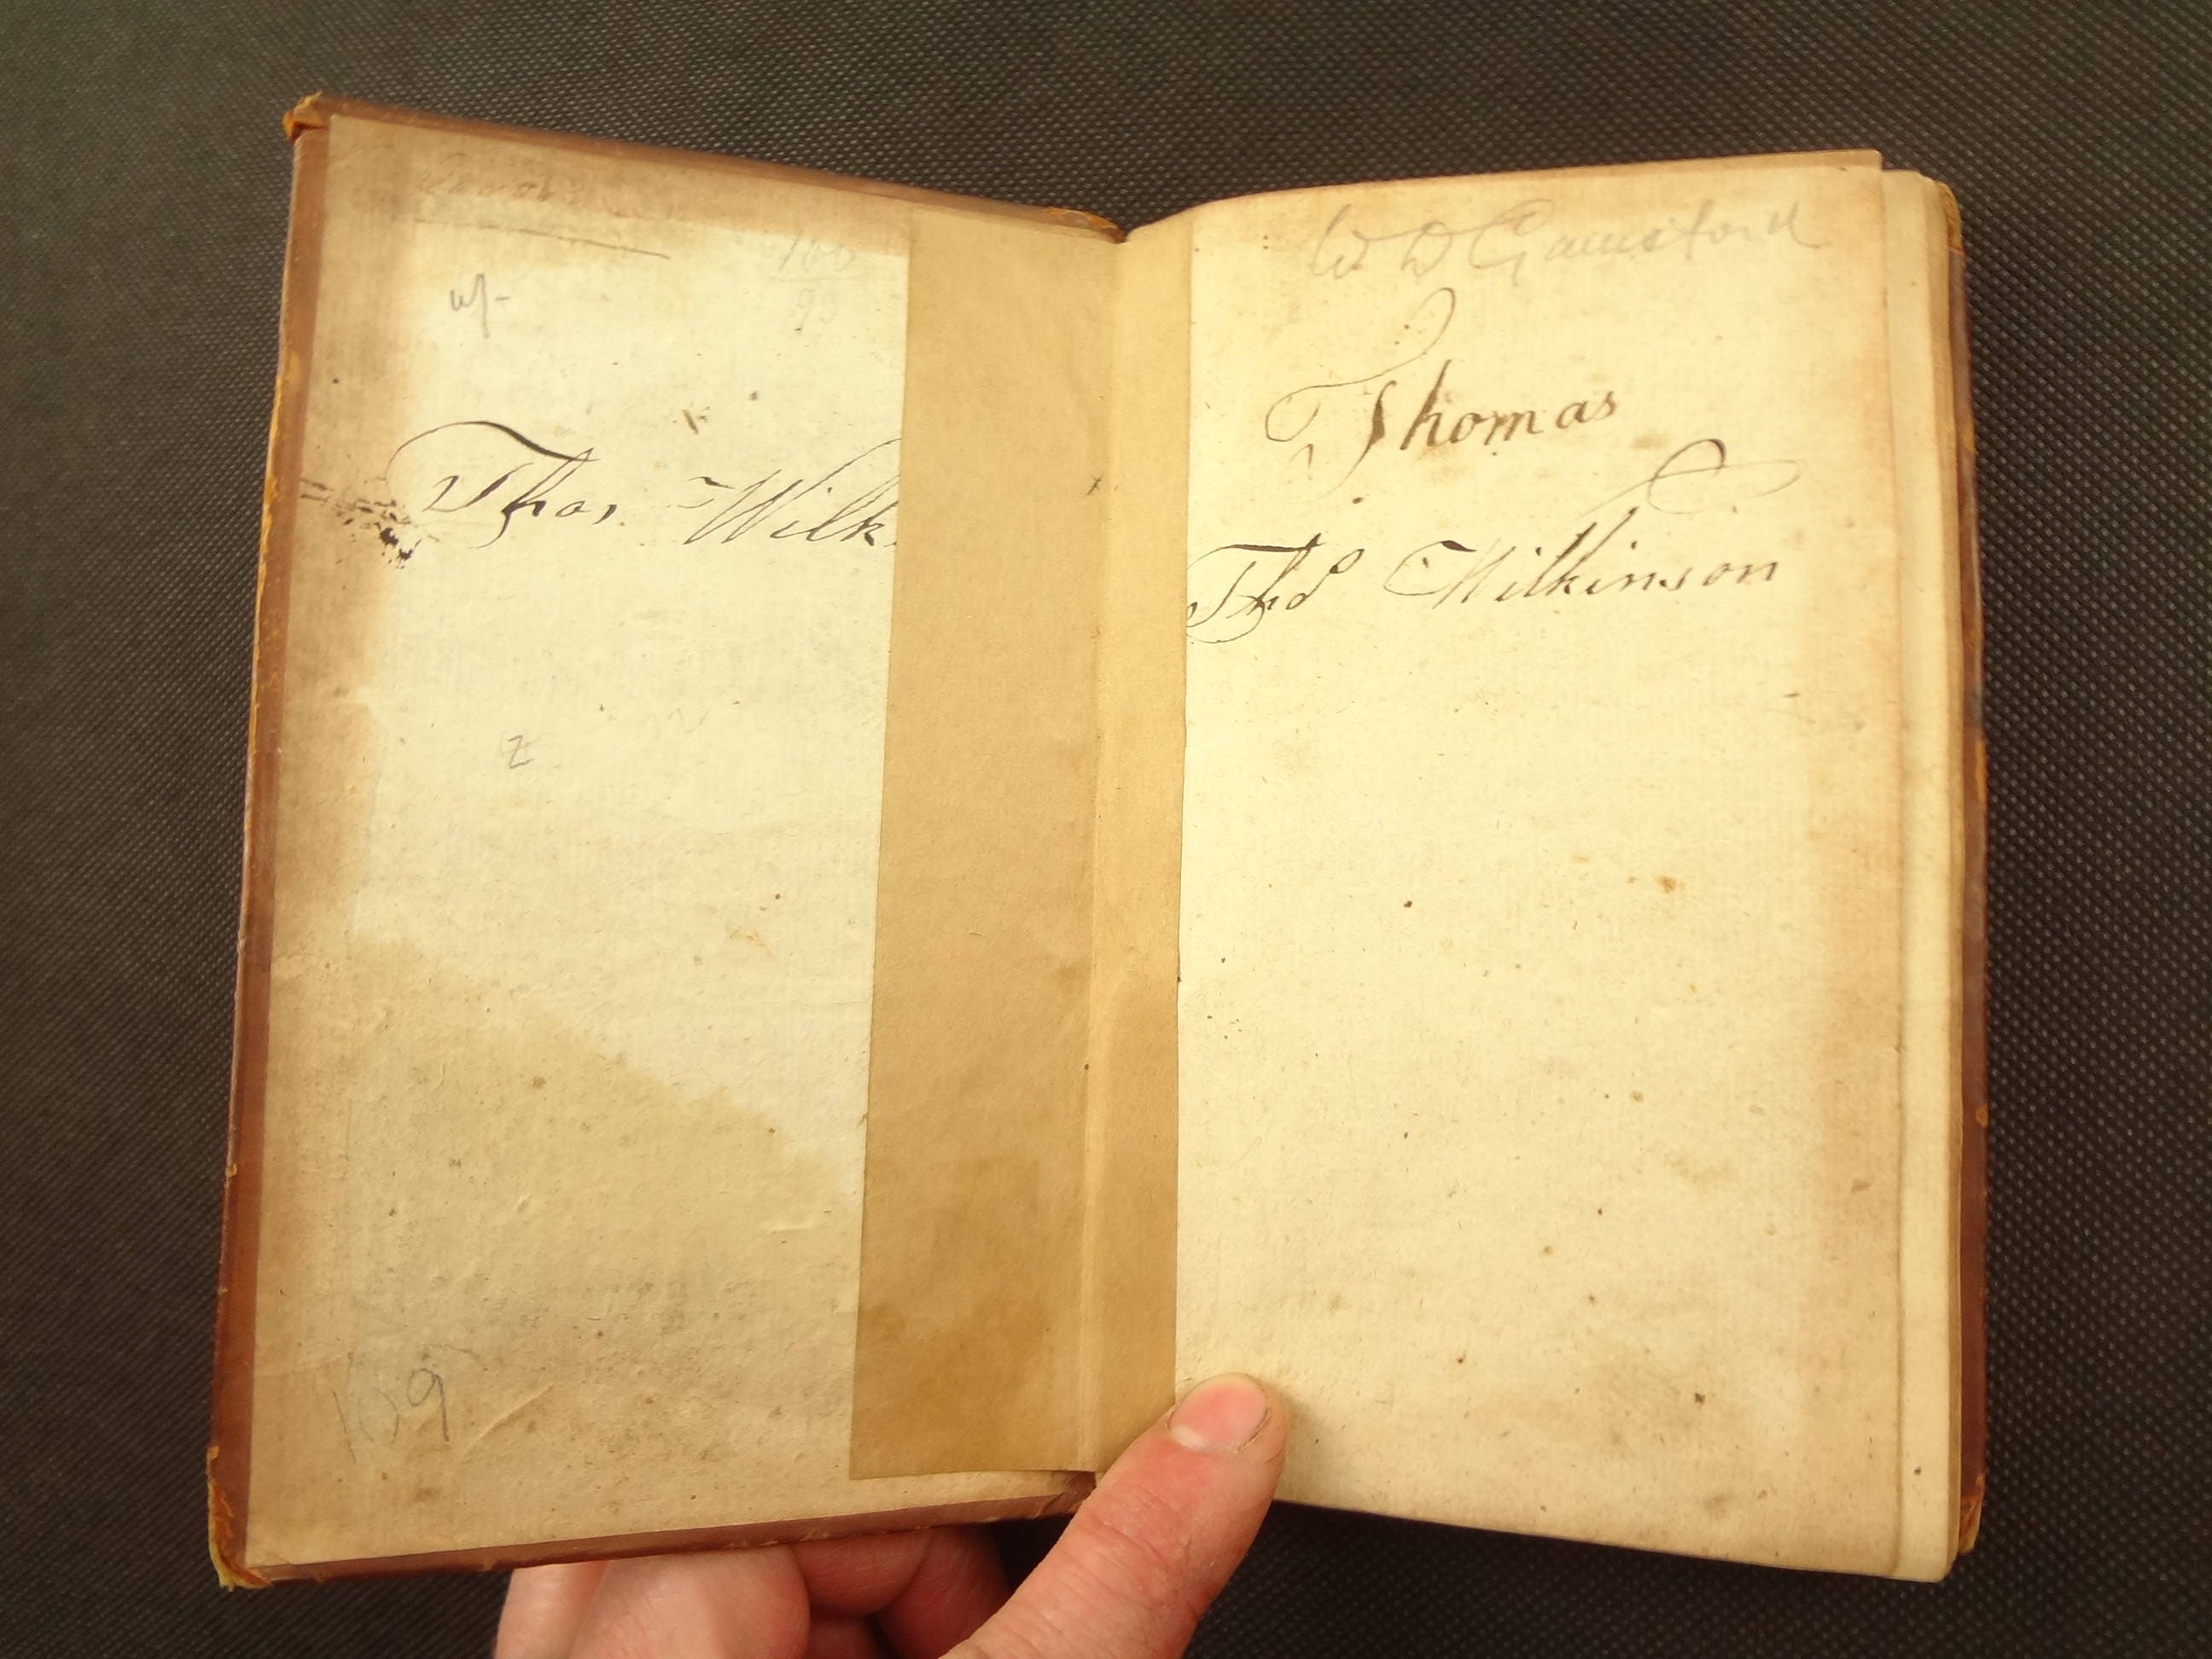 w/-
100
93
Thos, Wilk
z
109
W D Gainsford
Thomas
Thos Wilkinson